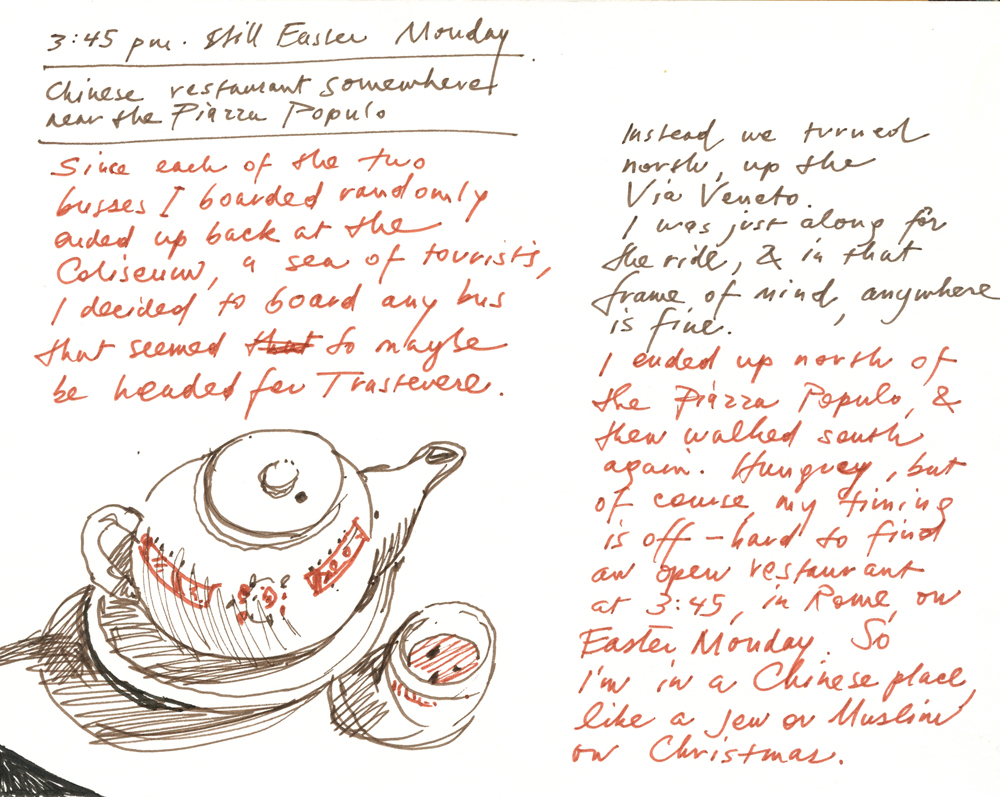 3:45 pm. Still Easter Monday
Chinese restaurant somewhere
near the Piazza Populo
Since each of the two
busses I boarded randomly
ended up back at the
Coliseum, a sea of tourists,
I decided to board any bus
that seemed that to maybe
be headed for Trastevere.
Instead we turned
north, up the
Via Veneto.
I was just along for
the ride, & in that
frame of mind, anywhere
is fine.
I ended up north of
the Piazza Populo, &
then walked south
again. Hungrey, but
of course, my timing
is off – hard to find
an open restaurant
at 3:45, in Rome, on
Easter Monday. So
I'm in a Chinese place,
like a Jew or Muslim
on Christmas.